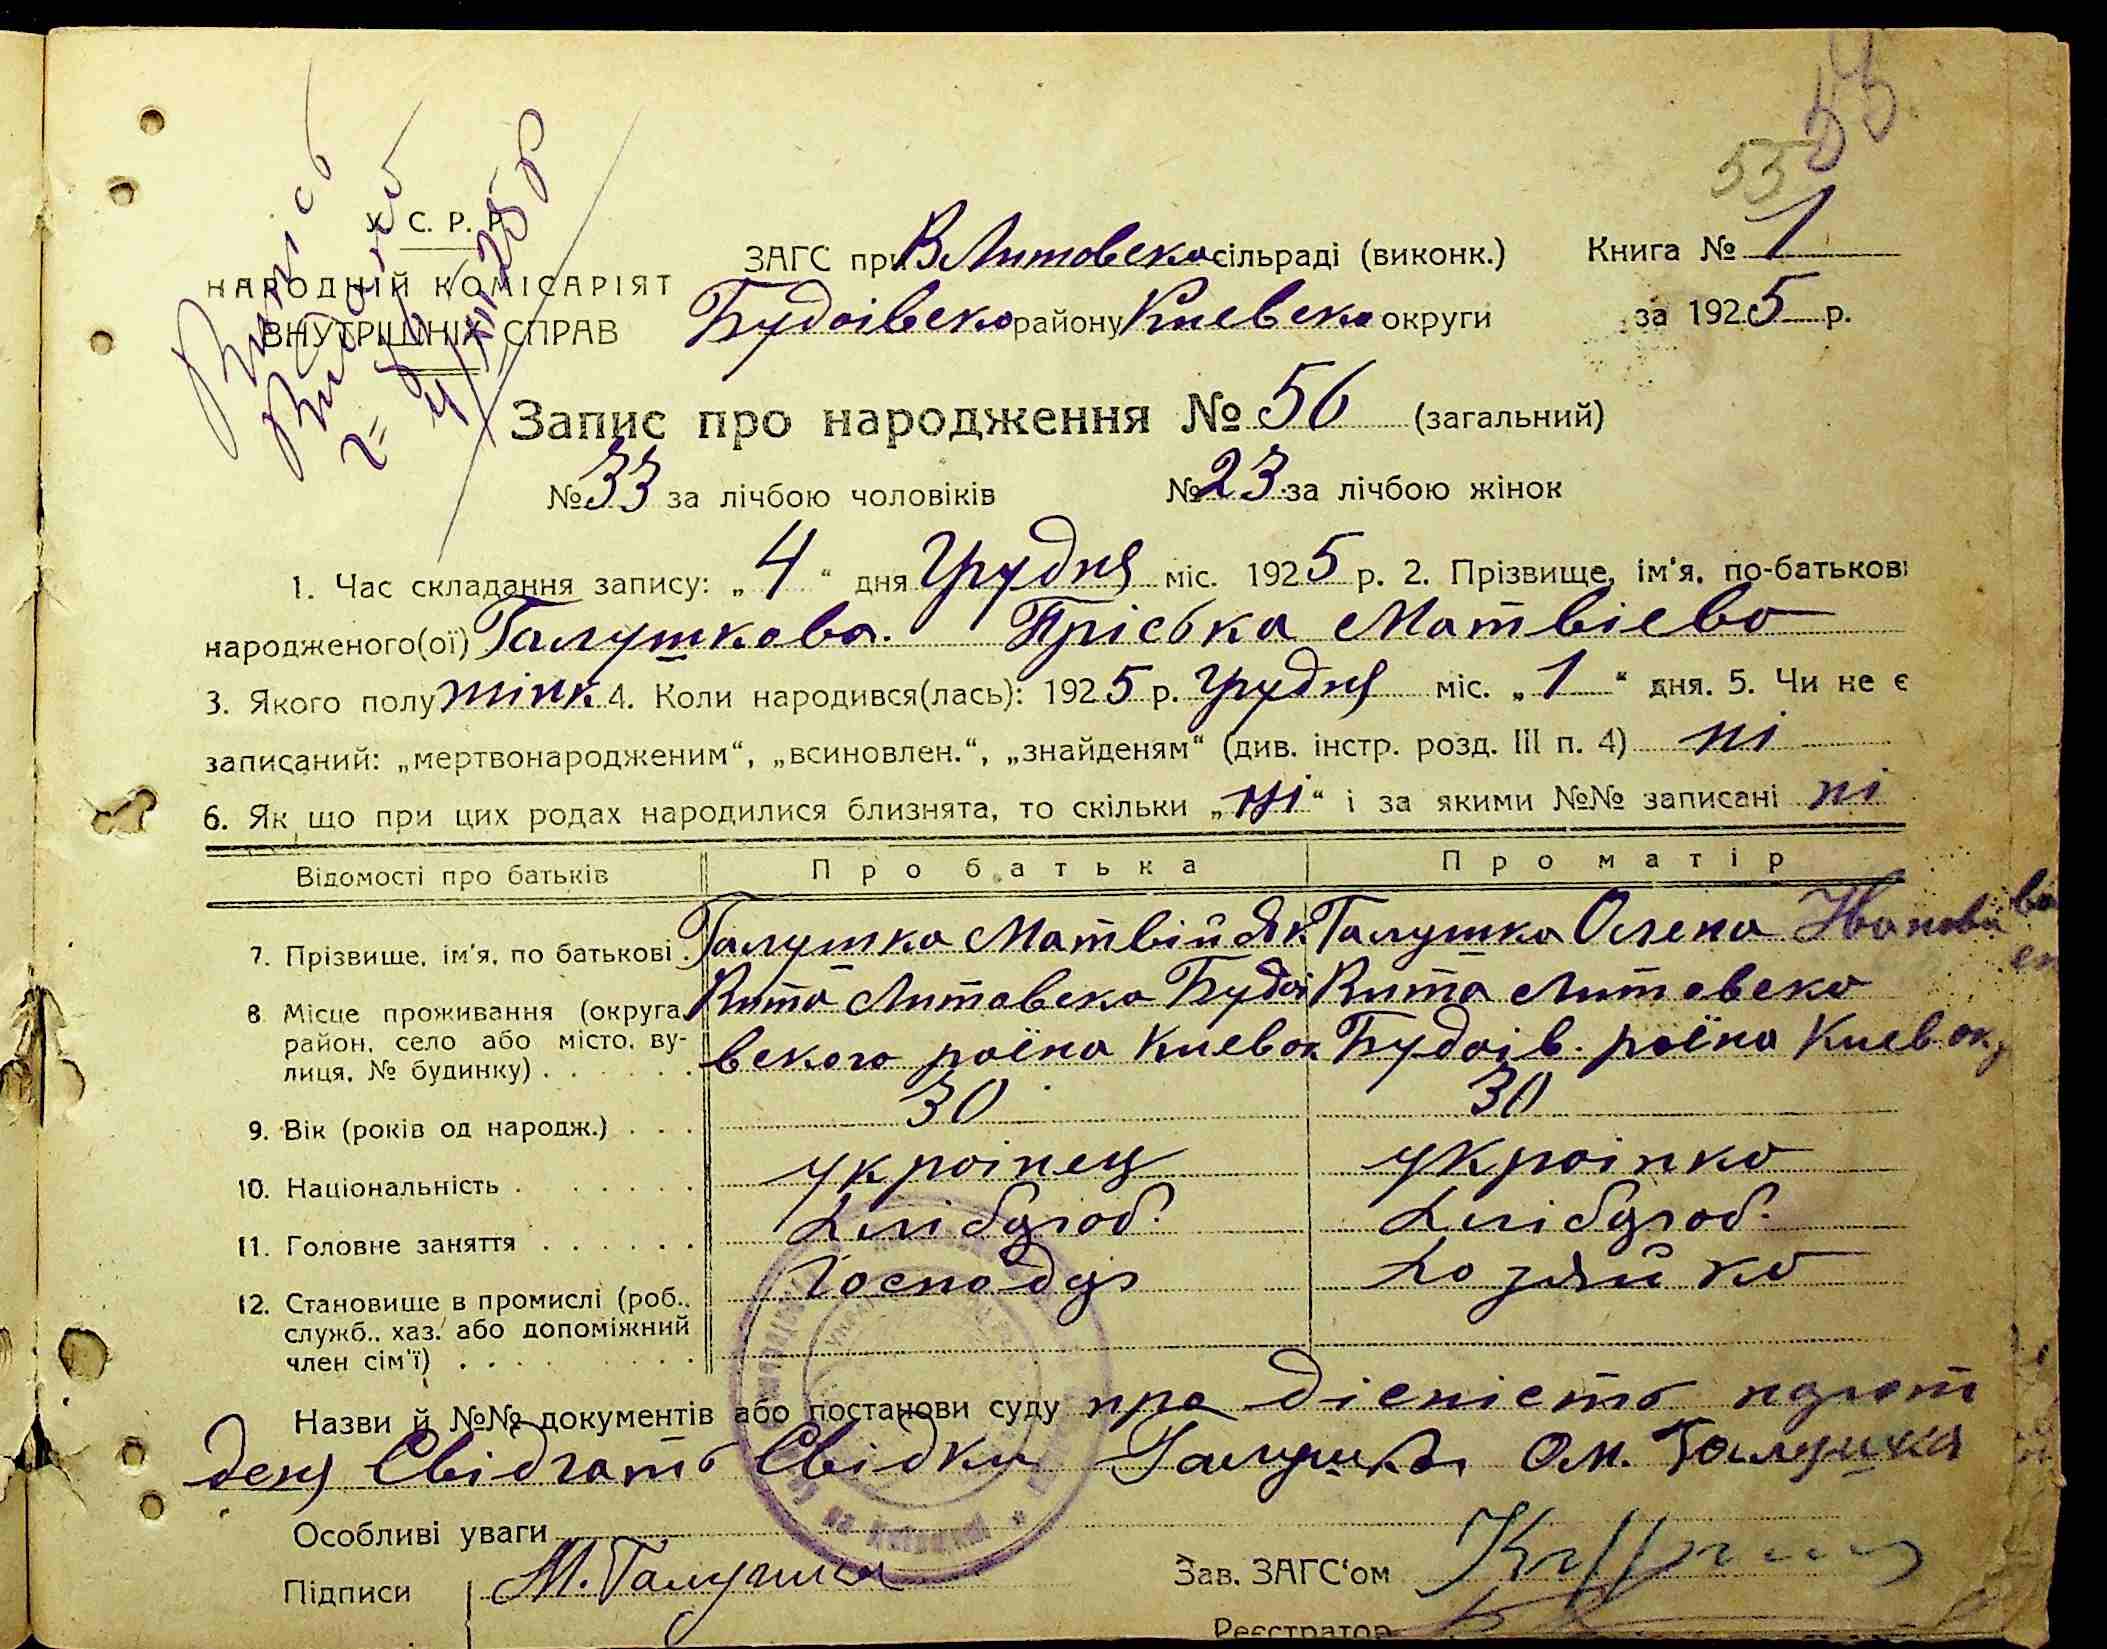 55
55
Випись
Видано
4/XII 25 р
У. С. Р. Р.
НАРОДНІЙ КОМІСАРІЯТ
ВНУТРІШНІХ СПРАВ
ЗАГС при В Литовско сільраді (виконк.) Книга № 1
Будаівско району Киевско округи за 1925 р.
Запис про народження № 56 (загальний)
№ 33 за лічбою чоловіків № 23 за лічбою жінок
1. Час складання запису: „4“ дня Грудня міс. 1925 р. 2. Прізвище, ім'я, по-батькові
народженого(ої) Галушкова. Пріська Матвіева
3. Якого полу жінк 4. Коли народився(лась): 1925 р. Грудня міс. „1“ дня. 5. Чи не є
записаний: „мертвонародженим“, „всиновлен.“, „знайденям“ (див. інстр. розд. III п. 4) ні
6. Як що при цих родах народилися близнята, то скільки „ні“ і за якими №№ записані ні
Відомості про батьків Про батька Про матір
7. Прізвище, ім'я, по батькові. Галушка Матвій Як Галушка Олена Иванова
8. Місце проживання (округа, район, село або місто, вулиця, № будинку) Вита Литовска Будаі Вита Литовска
вского раёна Киев ок Будаів. раёна Киев ок
9. Вік (років од народж.) . . . 30 30
10. Національність . україпец українка
11. Головне заняття . . . . . . Хлібороб. Хлібороб.
12. Становище в промислі (роб., Господар Хозяйка
служб., хаз. або допоміжний
член сім'ї) . . .
Назви й №№ документів або постанови суду про дісність
Свідки Галушка Ол. Галушка
Особливі уваги
Підписи М. Галушка Зав. ЗАГС'ом
Реєстратор